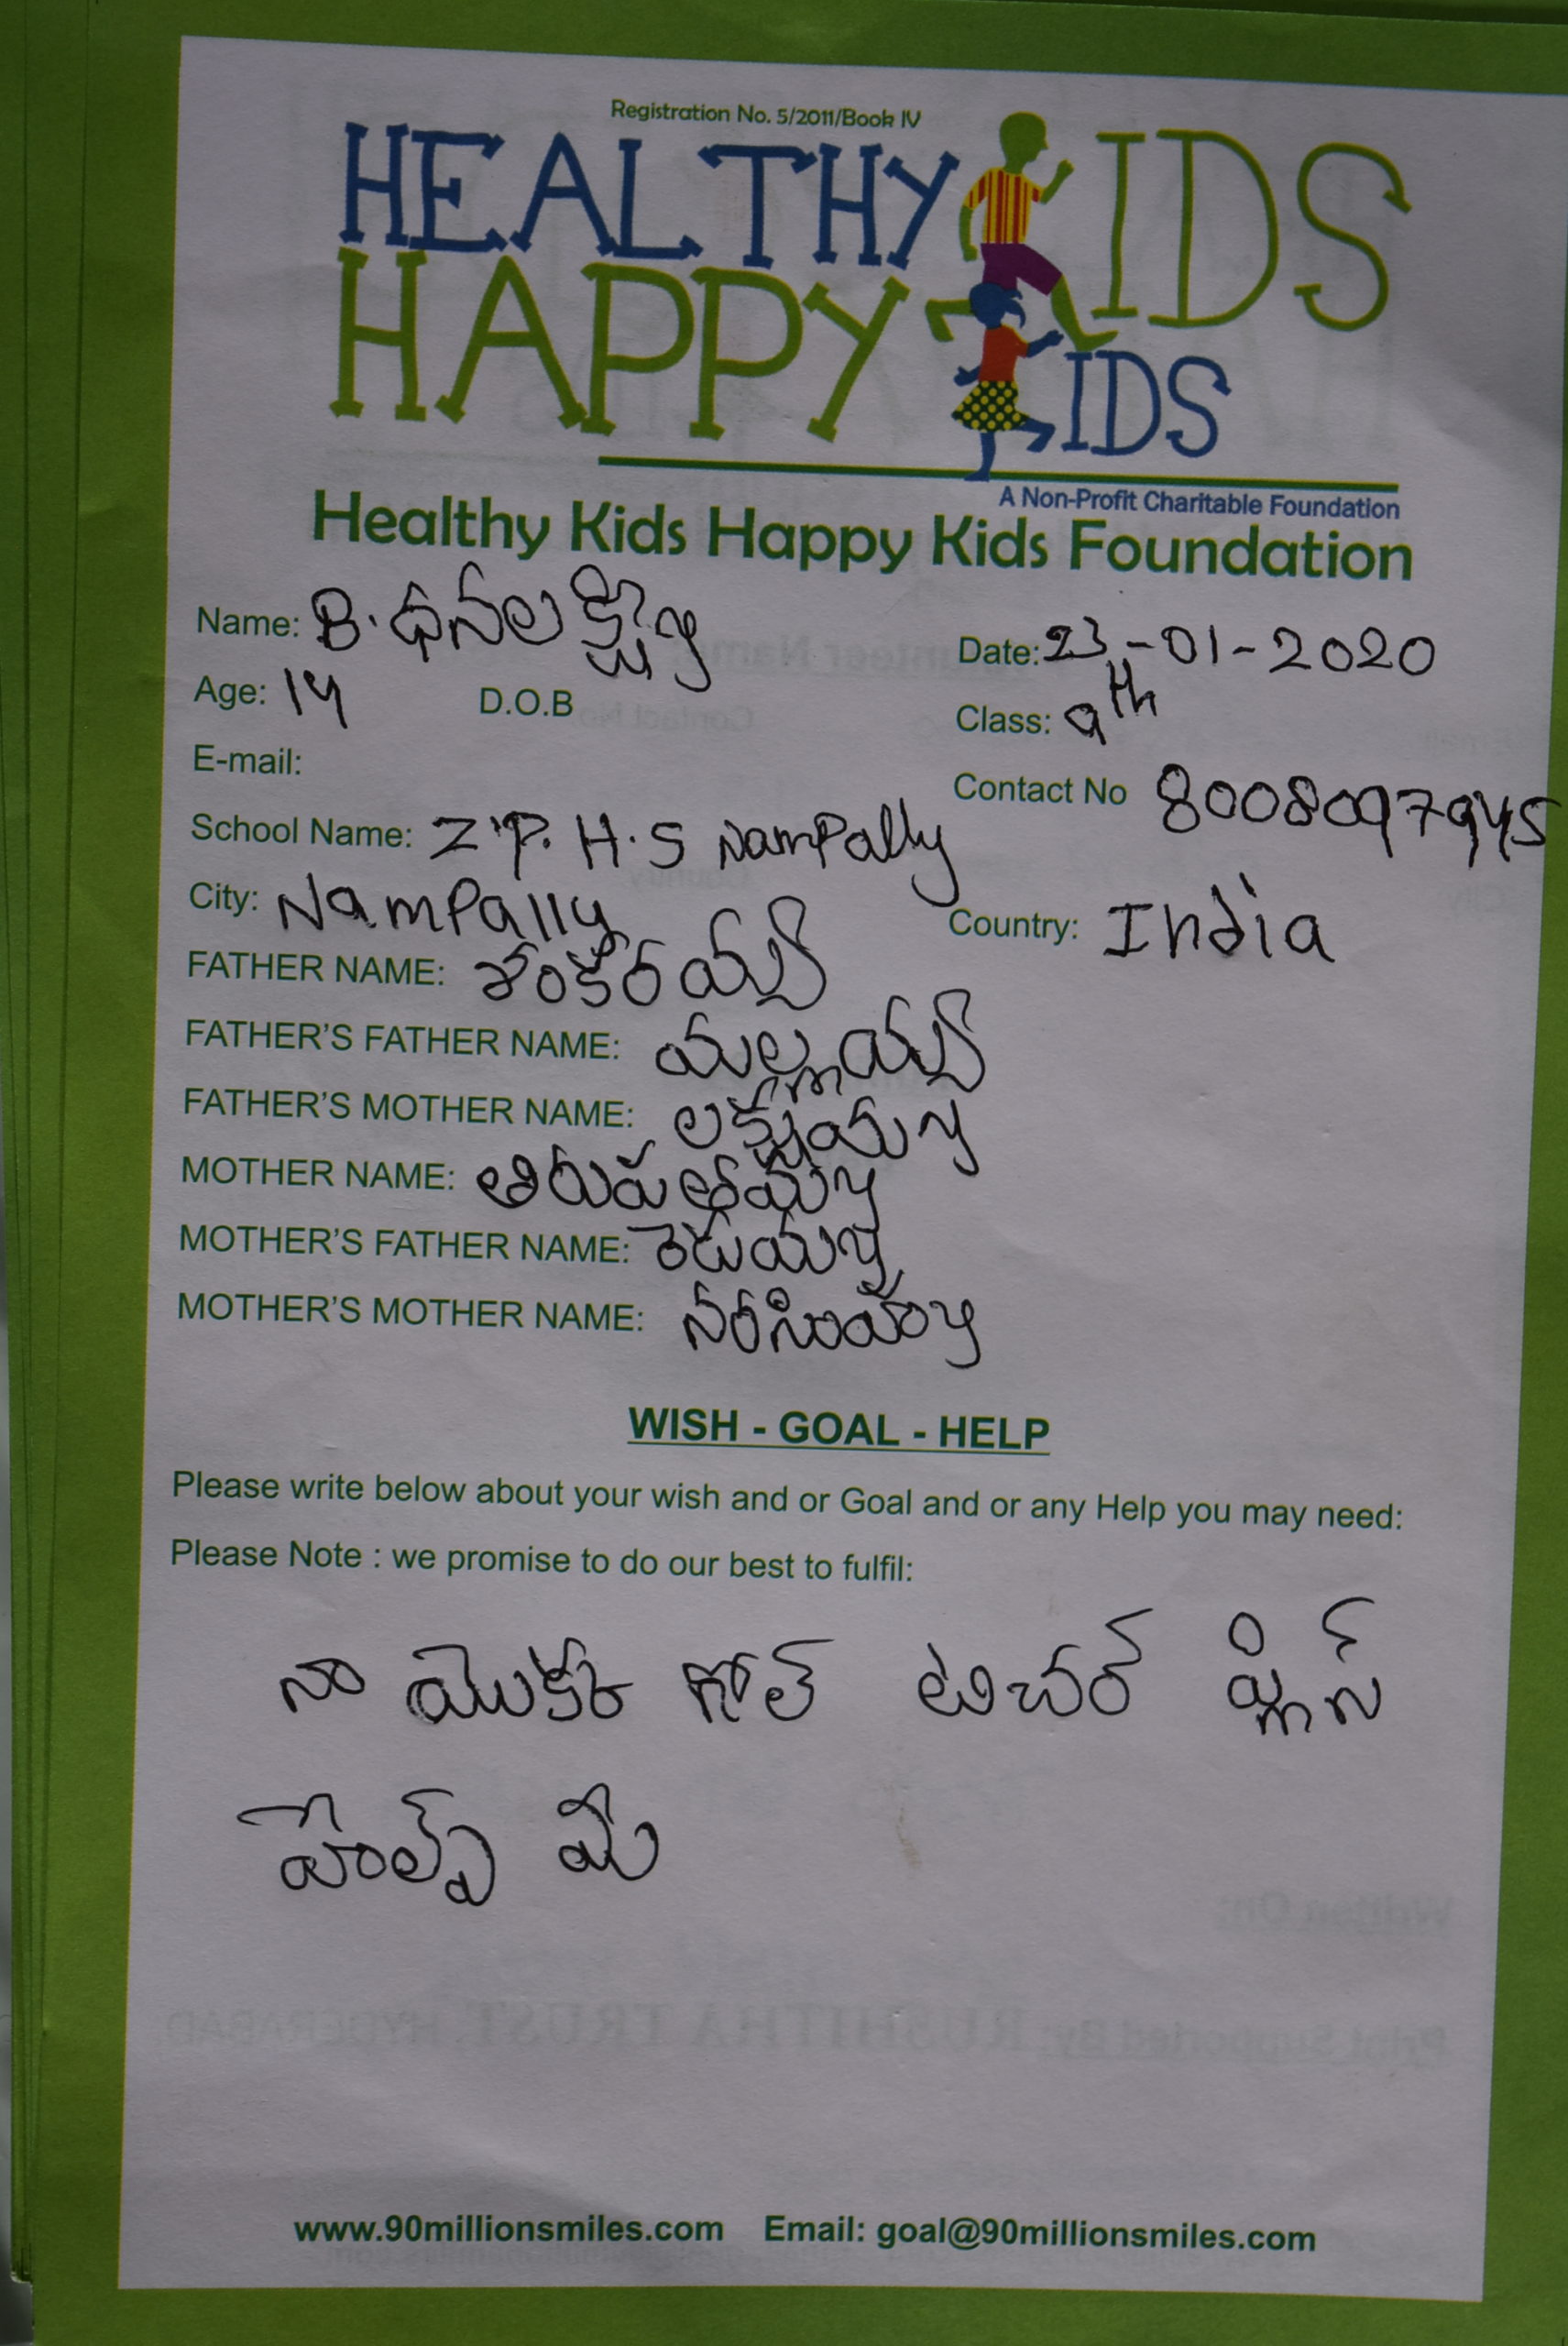 Registration No. 5/2011/Book IV
HEALTHY KIDS
HAPPY KIDS
A Non-Profit Charitable Foundation
Healthy Kids Happy Kids Foundation
Name: B. ధనలక్ష్మి Date: 23-01-2020
Age: 14 D.O.B Class: 9th
E-mail: Contact No 8008097945
School Name: Z.P. H.S NamPally
City: NamPally Country: India
FATHER NAME: శంకరయ్య
FATHER'S FATHER NAME: మల్లయ్య
FATHER'S MOTHER NAME: లక్ష్మమ్మ
MOTHER NAME: తిరుపతమ్మ
MOTHER'S FATHER NAME:
MOTHER'S MOTHER NAME:
WISH - GOAL - HELP
Please write below about your wish and or Goal and or any Help you may need:
Please Note : we promise to do our best to fulfil:
నా యొకక గోల్ టిచర్ ప్లిస్
హెల్ప్ మి
www.90millionsmiles.com Email: goal@90millionsmiles.com